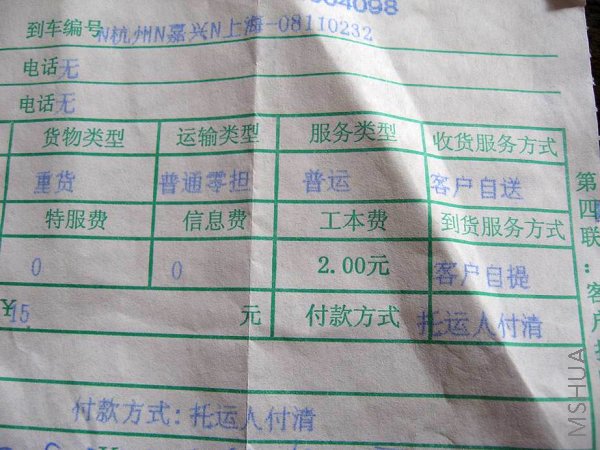 004098
到车编号N杭州N嘉兴N上海-08110232
电话无
电话无
货物类型 运输类型 服务类型 收货服务方式
重货 普通零担 普运 客户自送
特服费 信息费 工本费 到货服务方式
0 0 2.00元 客户自提
¥15 元 付款方式 托运人付清
付款方式:托运人付清
第四联:客户
MSHUA